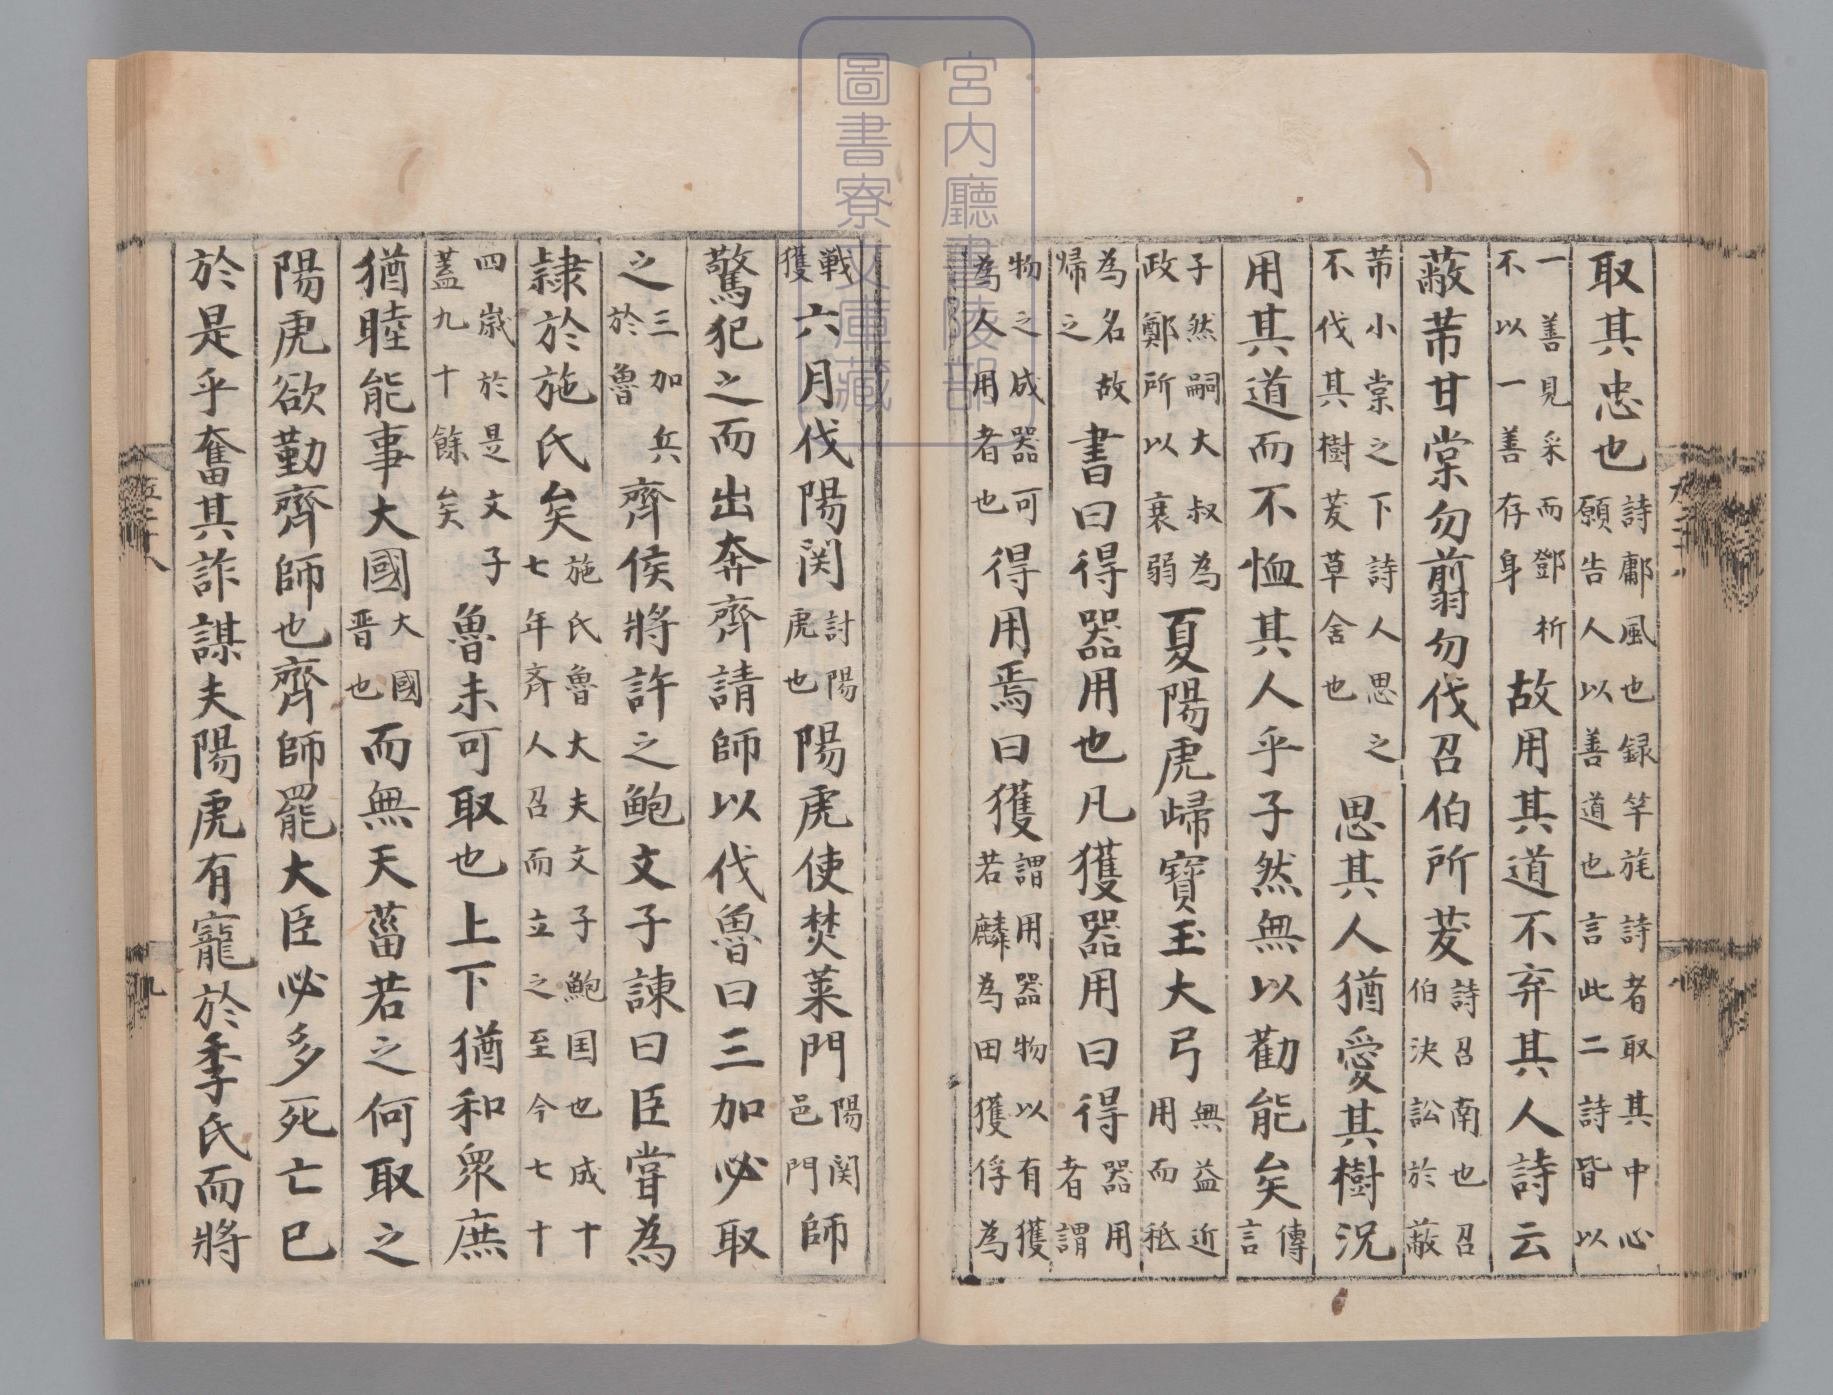 取其忠也詩鄘風也録竿旄詩者取其中心願告人以善道也言此二詩皆以
一善見采而鄧析不以一善存身故用其道不弃其人詩云
蔽芾甘棠勿翦勿伐召伯所茇詩召南也召伯決訟於蔽
芾小棠之下詩人思之不伐其樹茇草舍也思其人猶愛其樹況
用其道而不恤其人乎子然無以勸能矣傳言
子然嗣大叔為政鄭所以衰弱夏陽虎歸寶玉大弓無益近用而秪
為名故歸之書曰得器用也凡獲器用曰得器用者謂
物之成器可為人用者也得用焉曰獲謂用器物以有獲若麟為田獲俘為
戰獲六月伐陽関討陽虎也陽虎使焚萊門陽関邑門師
驚犯之而出奔齊請師以伐魯曰三加必取
之三加兵於魯齊侯將許之鮑文子諫曰臣甞為
隸於施氏矣施氏魯大夫文子鮑国也成十七年斉人召而立之至今七十
四歳於是文子蓋九十餘矣魯未可取也上下猶和衆庶
猶睦能事大國大國晋也而無天菑若之何取之
陽虎欲勤齊師也齊師罷大臣必多死亡已
於是乎奮其詐謀夫陽虎有寵於季氏而將
宮内廳書陵部
圖書寮文庫藏